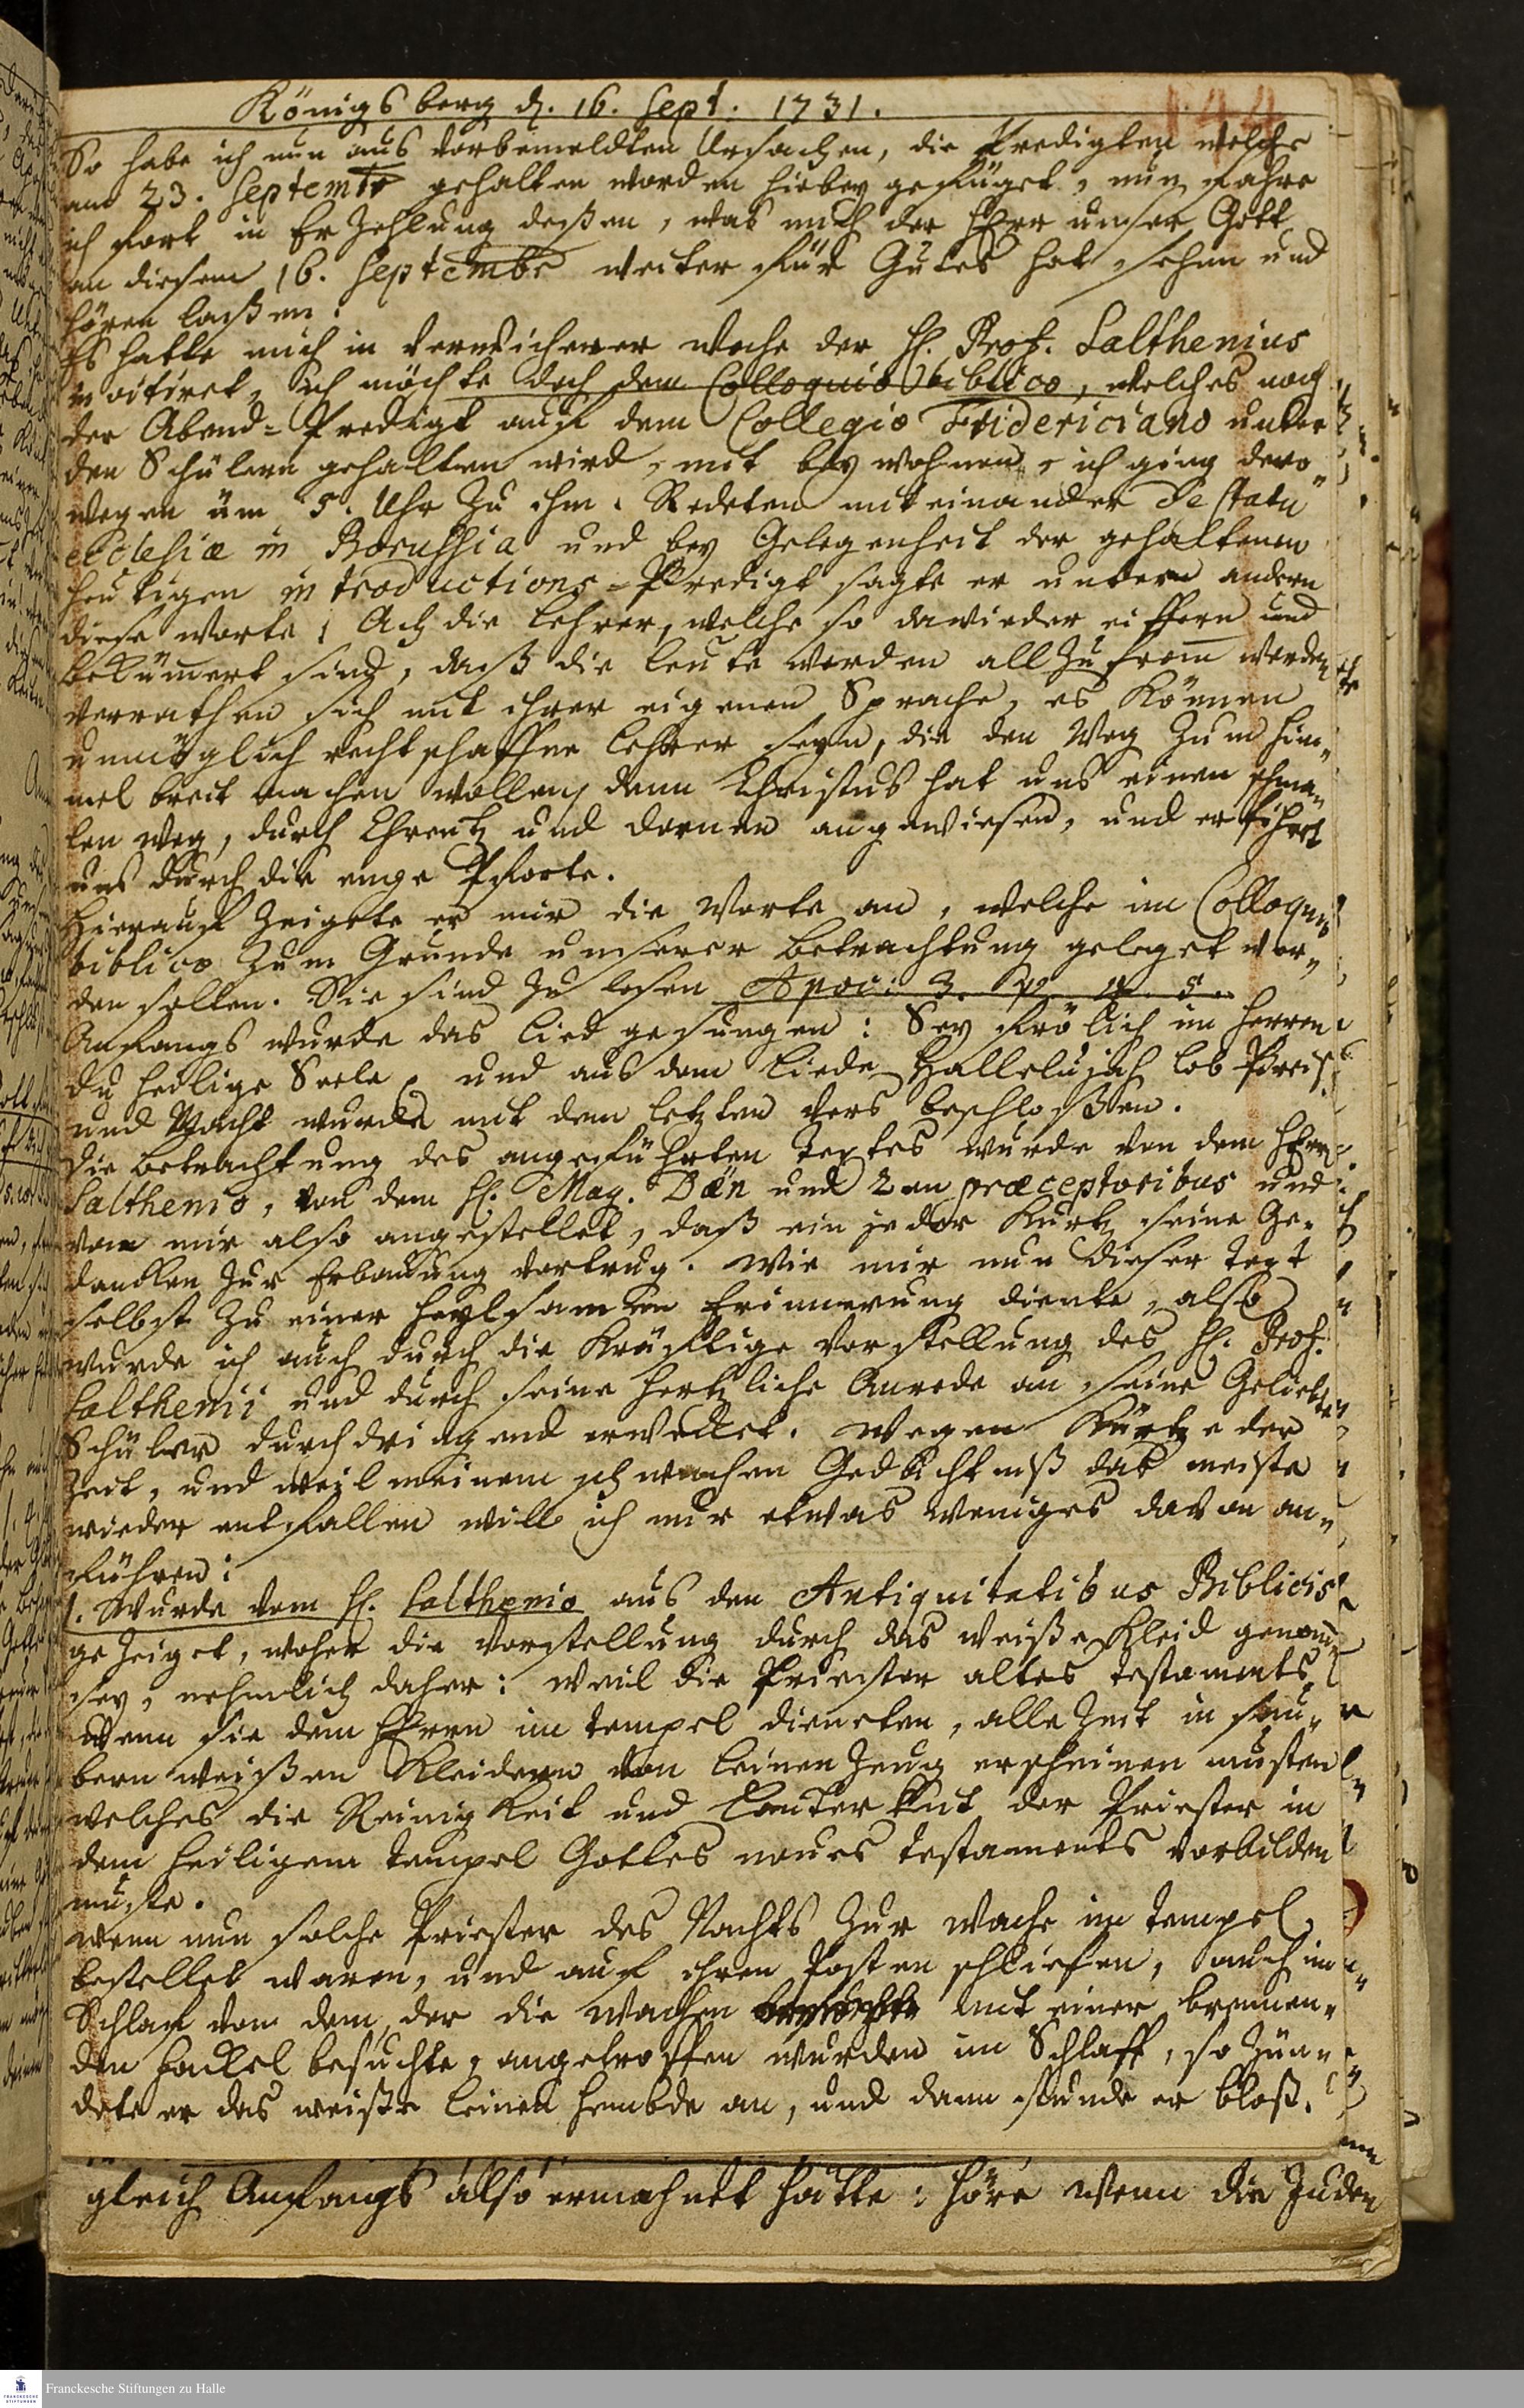 Königsberg d. 16. Sept. 1731.
144
So habe ich nun aus vorbemeldten Ursachen, die Predigten welche
am 23. Septembr gehalten worden hiebey gefüget, nun fahre
ich fort in Erzehlung deßen, was mich der HErr unser Gott
an diesem 16. Septembr weiter für Gutes hat sehen und
hören laßen:
Es hatte mich in verwichener Woche der H. Prof. Salthenius
invitiret, ich möchte doch dem Colloquio biblico, welches nach
der Abend-Predigt auf dem Collegio Fridericiano unter
den Schülern gehalten wird, mit beywohnen, ich ging dero„
wegen üm 5. Uhr zu ihm. Redeten miteinander de statu
ecclesiæ in Borussia und bey Gelegenheit der gehaltenen
heutigen introductions-Predigt sagte er untern andern
diese Worte: Ach die Lehrer, welche so dawieder eiffern und
bekümert sind, daß die Leute werden allzufrom werden
verrathen sich mit ihrer eigenen Sprache, es können
unmöglich rechtschaffne Lehrer seyn, die den Weg zum Him„
mel breit machen wollen, denn Christus hat uns einen schma„
len Weg, durch Creutz und Dornen angewiesen, und er führet
uns durch die enge Pforte.
Hierauf zeigete er mir die Worte an, welche im Colloquio
biblico zum Grunde unserer Betrachtung geleget wer„
den solten. Sie sind zu lesen Apoc: 3. v. 4. 5.
Anfangs wurde das Lied gesungen: Sey frölich im Herren
du heilige Seele, und aus dem Liede Hallelujah Lob Preiß
und Macht wurde mit dem letzten Vers beschloßen.
Die Betrachtung des angeführten Textes wurde von dem Herrn
Salthenio, von dem H. Mag. Dän und 2en præceptoribus und
von mir also angestellet, daß ein jeder kurtz seine Ge„
dancken zur Erbauung vortrug. Wie mir nun dieser Text
selbst zu einer heylsamen Erinnerung diente, also
wurde ich auch durch die kräfftige Vorstellung des H. Prof.
Salthenii und durch seine hertzliche Anrede an seine Geliebten
Schüler durchdringend erwecket. Wegen Kürtze der
Zeit, und weil meinem schwachen Gedächtniß das meiste
wieder entfallen will ich nur etwas weniges davon an„
führen:
1. Wurde vom H. Salthenio aus den Antiquitatibus Biblicis
gezeiget, woher die Vorstellung durch das weiße Kleid genom„
sey, nehmlich daher: weil die Priester altes Testaments,
wenn sie dem HErrn im Tempel dieneten, alle Zeit in sau„
bern weißen Kleidern von Leinenzeug erscheinen musten
welches die Reinigkeit und Lauterkeit der Priester in
dem heiligem Tempel Gottes neues Testaments vorbilden
muste.
Wenn nun solche Priester des Nachts zur Wache im Tempel
bestellet waren, und auf ihren Posten schliefen, auch im
Schlaf von dem, der die Wachen mit einer brennen„
den Fackel besuchte, angetroffen wurden im Schlaff, so zün„
dete er das weiße Leinen Hembde an, und dann stunde er bloß.
gleich Anfangs also ermahnet hatte: höre wenn die Juden
Franckesche Stiftungen zu Halle